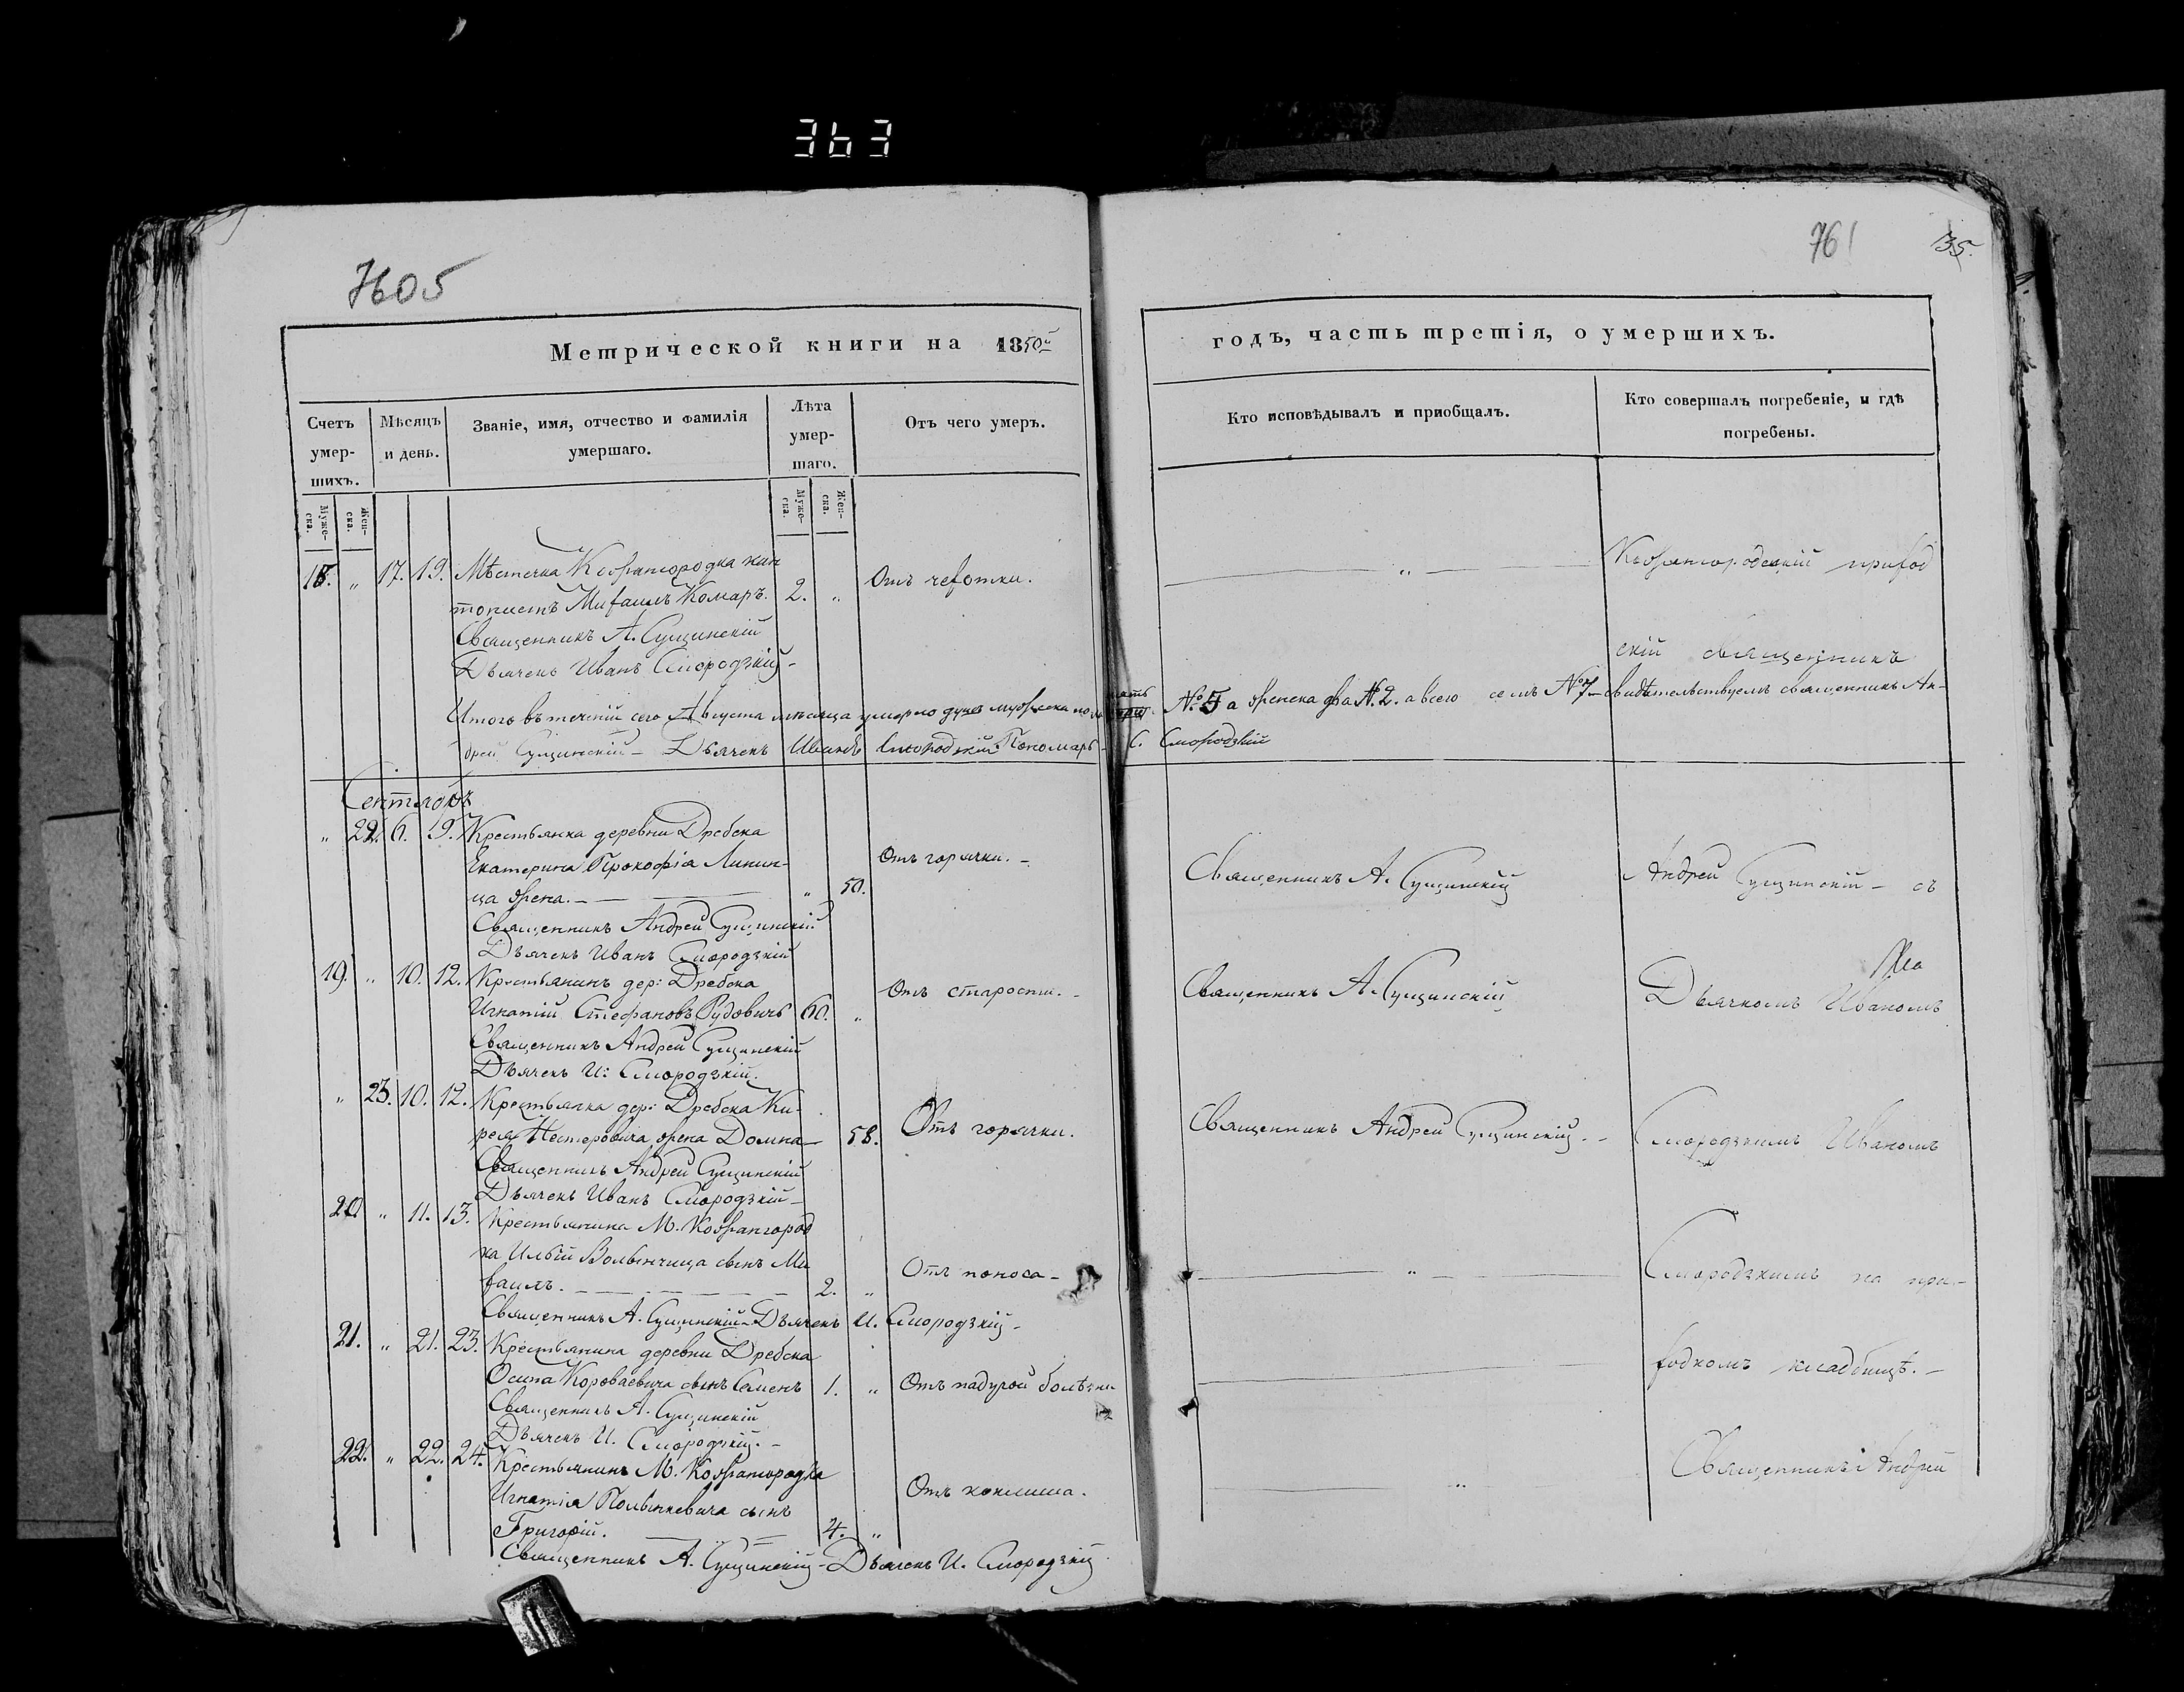 363
7605
761
35.
Метрической книги на 1850й
годъ, часть третія, о умершихъ.
Счетъ умер-шихъ.
Мѣсяцъ и день.
Званіе, имя, отчество и фамилія умершаго.
Лѣта умер-шаго.
Отъ чего умеръ.
Кто исповѣдывалъ и приобщалъ.
Кто совершалъ погребеніе, и гдѣ погребены.
Муже-ска.
Жен-ска.
Муже-ска.
Жен-ска.
18. „ 17. 19. Мѣстечка Кожангородка кан
тонистъ Михаилъ Комаръ. 2. „ Отъ чехотки. „ Кожангородскій приход
Священникъ А. Сущинскій
Дьячекъ Иванъ Смородзкій- скій священникъ
Итого въ теченіи сего Августа мѣсяца умерло душъ мужеска пять № 5 а женска два № 2. а всего семь № 7 - свидѣтельствуемъ священникъ Ан-
дрей Сущинскій - Дьячекъ Иванъ Смородзкій Пономарь С. Смородзкій
Сентябрь
„ 22. 6. 9. Крестьянка деревни Дребска
Екатерина Прокофія Линин- Отъ горячки. - Священникъ А. Сущинскій Андрей Сущинскій - съ
ца жена. - „ 50.
Священникъ Андрей Сущинскій
Дьячекъ Иванъ Смородзкій
19. „ 10. 12. Крестьянинъ дер: Дребска
Игнатій Стефановъ Рудовичь 60. „ Отъ старости. - Священникъ А. Сущинскій Дьячкомъ Иваномъ
Священникъ Андрей Сущинскій
Дьячекъ И: Смородзкій.
„ 23. 10. 12. Крестьянка дер: Дребска Ки-
рея Нестеровича жена Домна - 58. Отъ горячки. Священникъ Андрей Сущинскій. - Смородзкимъ Иваномъ
Священникъ Андрей Сущинскій
Дьячекъ Иванъ Смородзкій -
20 „ 11. 13. Крестьянина М. Кожангород
ка Иліи Волынчица сынъ Ми
хаилъ. 2. „ Отъ поноса - „ Смородзкимъ на при-
Священникъ А. Сущинскій - Дьячекъ И. Смородзкій -
21. „ 21. 23. Крестьянина деревни Дребска
Осипа Короваевича сынъ Семенъ 1. „ Отъ падучой болѣзни ходкомъ кладбищѣ. -
Священникъ А. Сущинскій
Дьячекъ И. Смородзкій. -
22. „ 22. 24. Крестьянина М. Кожангородка Священникъ Андрей
Игнатія Полынкевича сынъ Отъ коклиша. „
Григорій. 4. „
Священникъ А. Сущинскій - Дьячекъ И. Смородзкій